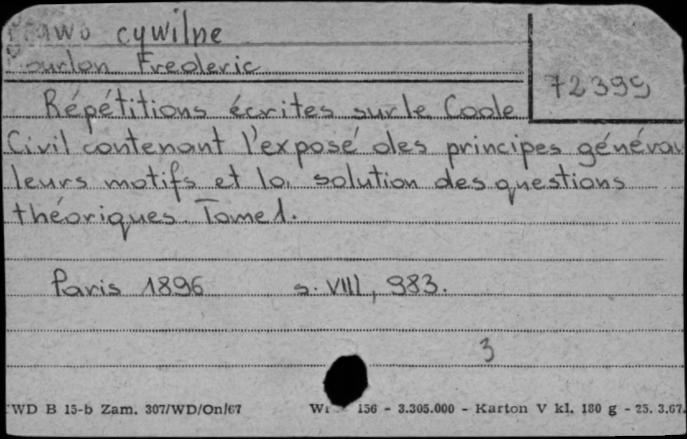 Prawo cywilne
Mourlon Frederic
72399
Répétitions écrites sur le Code
Civil contenant l'exposé des principes générau
leurs motifs et la solution des questions
théoriques. Tome 1.
Paris 1896 s. VIII, 983.
3
WD B 15-b Zam. 307/WD/On/67 156 - 3.305.000 - Karton V kl. 180 g - 25. 3.67.